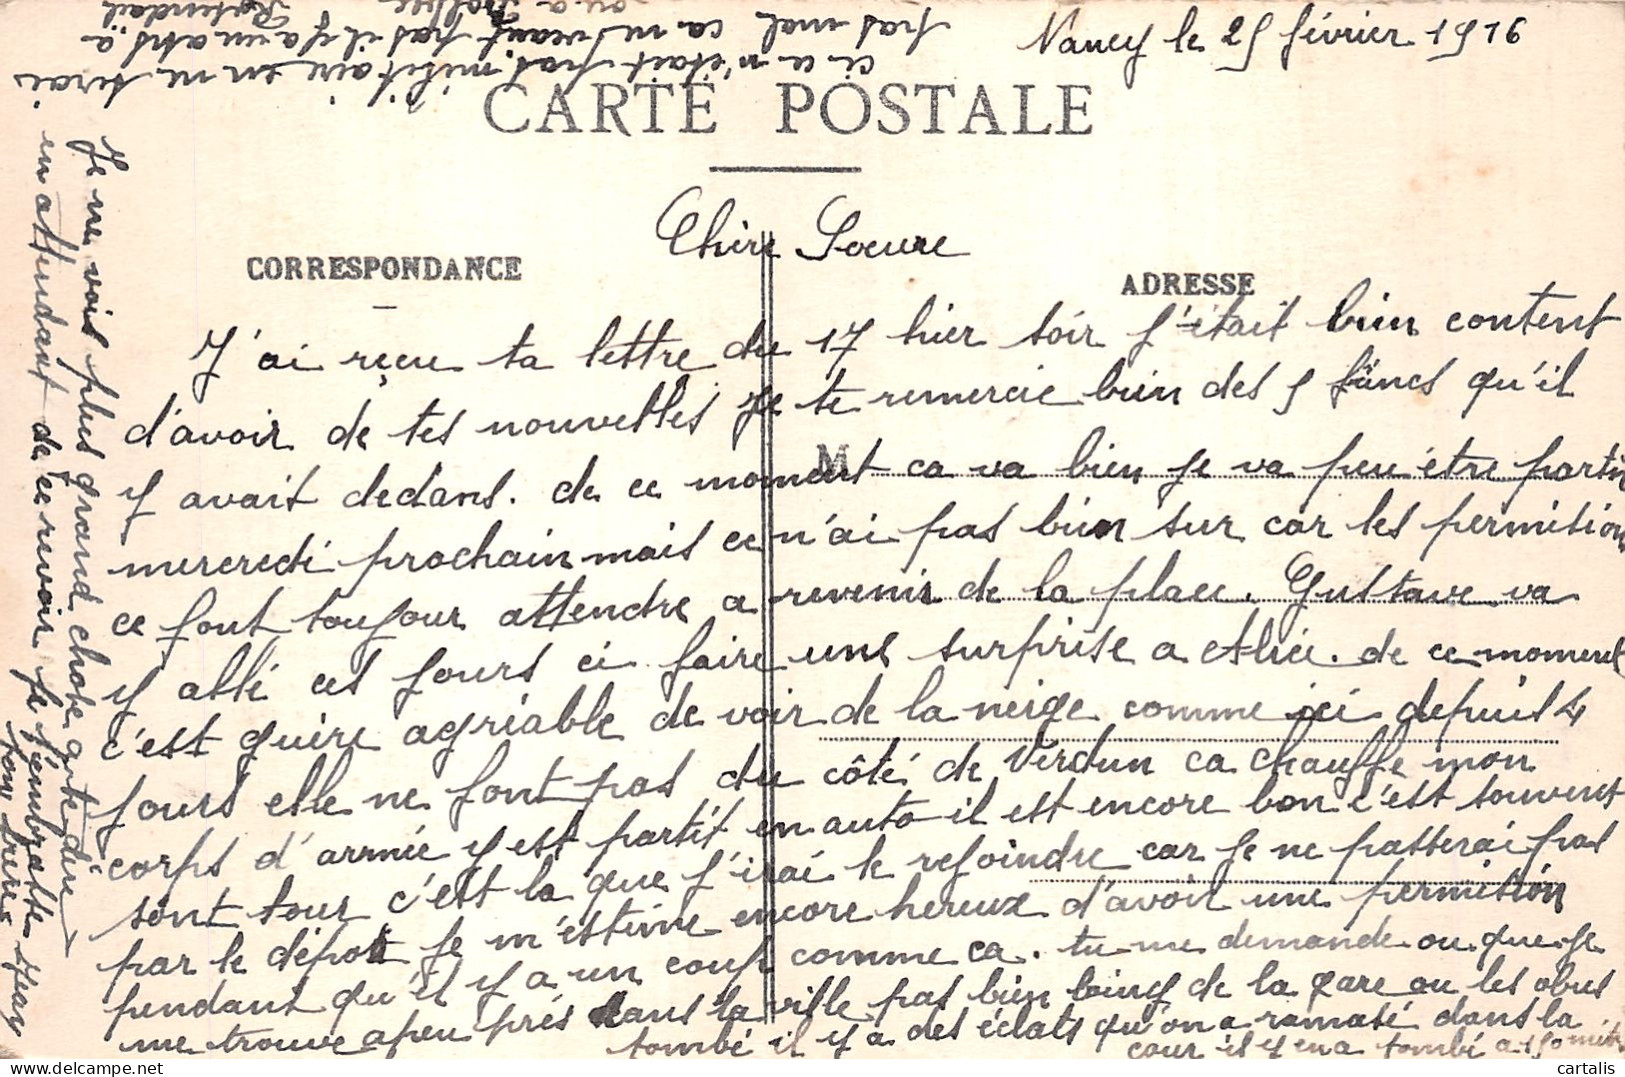 Nancy le 25 février 1916
CARTE POSTALE
Chère Soeure
CORRESPONDANCE
ADRESSE
J'ai reçu ta lettre du 17 hier soir j'était bien content
d'avoir de tes nouvelles Je te remercie bien des 5 francs qu'il
M
y avait dedans. de ce moment ca va bien je va peu être partir
mercredi prochain mais ce n'ai pas bien sur car les permision
ce font toujour attendre a revenir de la place. Gustave va
y allé ces jours ci faire une surprise a Alice. de ce moment
c'est guère agriable de voir de la neige comme ici depuis 4
jours elle ne font pas du côté de Verdun ca chauffe mon
corps d'armée y est partit en auto il est encore bon c'est souvent
sont tour c'est la que j'irai le rejoindre car je ne passerai pas
par le dépot je m'éstime encore hereux d'avoir une permision
pendant qu'il y a un coup comme ca. tu me demande ou que je
me trouve a peu près dans la ville pas bien loing de la gare ou les obus
tombé il y a des éclats qu'on a ramasé dans la
cour il y en a tombé a 150 mètr
Je ne vois plus grand chose a te dire
en attendant de ce revoir je t'embrasse
ton frère
ci ce n'était pas militaire en ne serai
pas mal ca ne veaut pas il y a un abs a